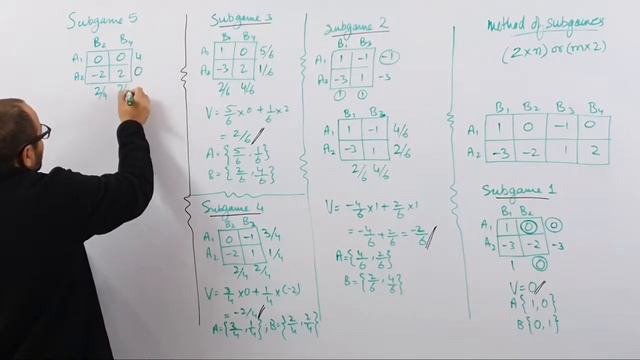 Subgame 5
B2 B4
A1 0 0 4
A2 -2 2 0
2/4 2/
Subgame 3
B1 B4
A1 1 0 5/6
A2 -3 2 1/6
2/6 4/6
V = 5/6 x 0 + 1/6 x 2
= 2/6
A = {5/6, 1/6}
B = {2/6, 4/6}
Subgame 4
B2 B3
A1 0 -1 3/4
A2 -2 1 1/4
2/4 2/4
V = 3/4 x 0 + 1/4 x (-2)
= -2/4
A = {3/4, 1/4}, B = {2/4, 2/4}
Subgame 2
B1 B3
A1 1 -1 -1
A2 -3 1 -3
1 1
B1 B3
A1 1 -1 4/6
A2 -3 1 2/6
2/6 4/6
V = -4/6 x 1 + 2/6 x 1
= -4/6 + 2/6 = -2/6
A = {4/6, 2/6}
B = {2/6, 4/6}
method of subgames
(2 x n) or (m x 2)
B1 B2 B3 B4
A1 1 0 -1 0
A2 -3 -2 1 2
Subgame 1
B1 B2
A1 1 0 0
A2 -3 -2 -3
1 0
V = 0
A {1, 0}
B {0, 1}